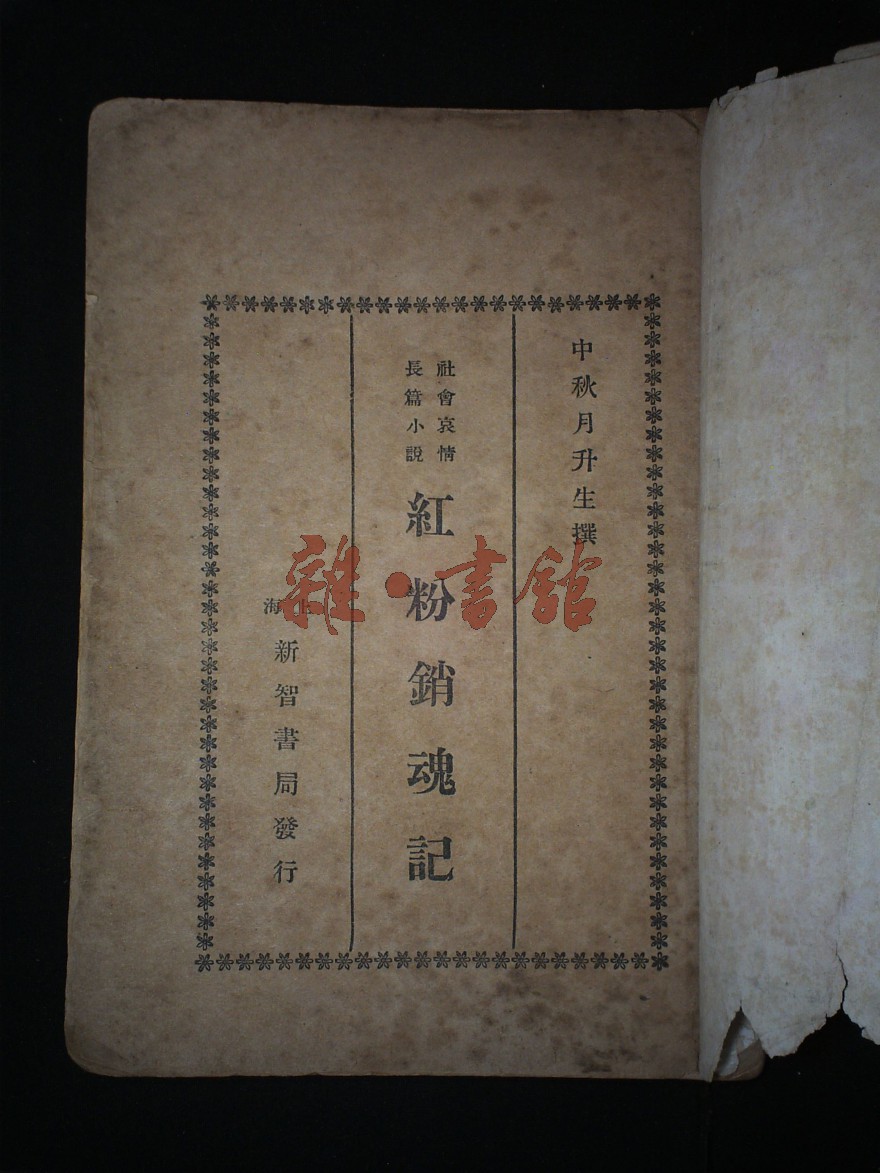 中秋月升生撰
社會哀情
長篇小説
紅粉銷魂記
上海
新智書局發行
雜·書館